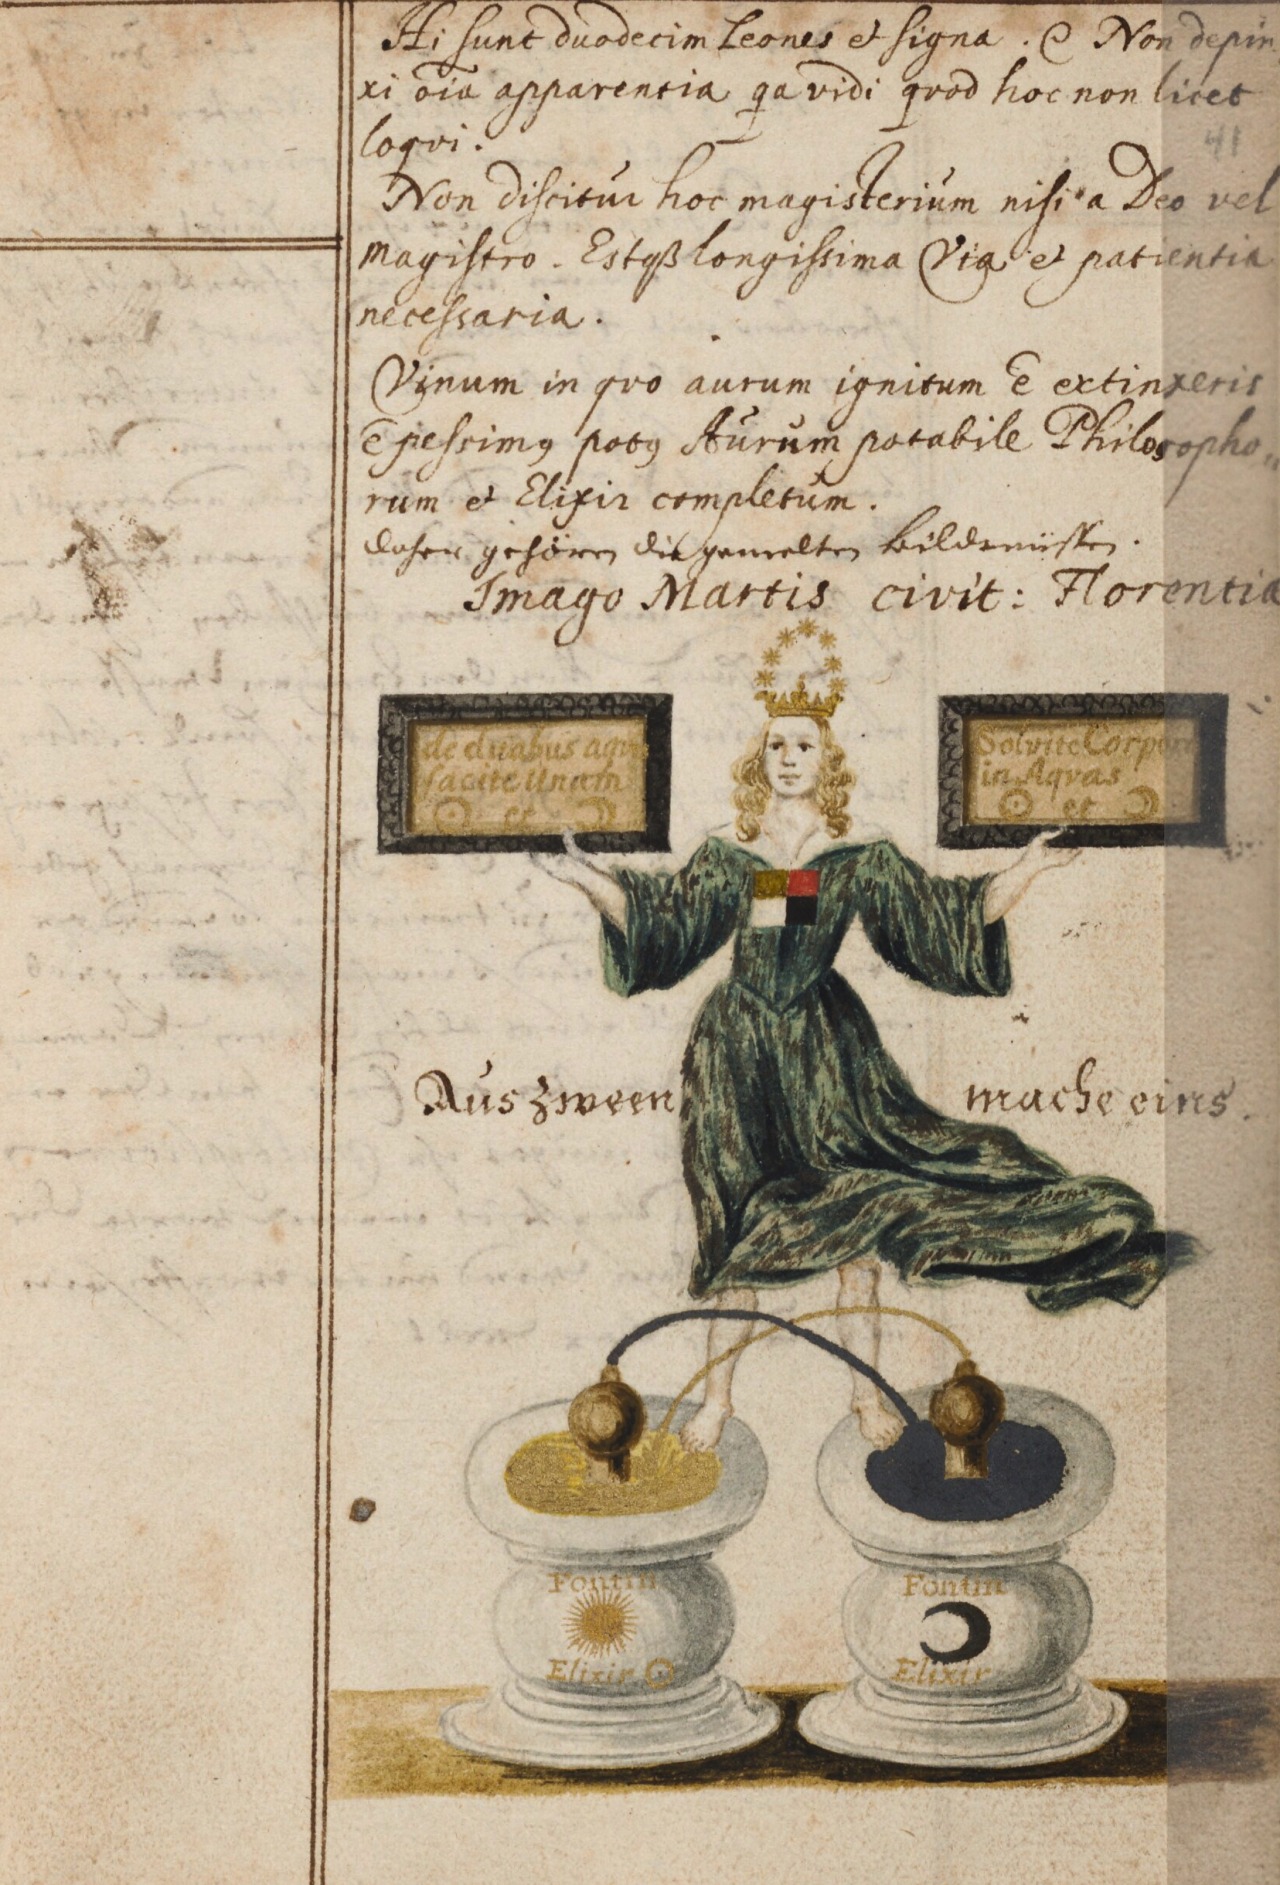 Hi sunt duodecim Leones et signa. Non depin
xi oīa apparentia qa vidi qvod hoc non licet
loqvi.
41
Non discitur hoc magisterium nisi a Deo vel
magistro. Estqß longissima Via et patientia
necessaria.
Vinum in qvo aurum ignitum ē extinxeris
ē pessimꝯ potꝯ Aurum potabile Philosopho„
rum et Elixir completum.
daher gehören die gemalten bildnüssen.
Imago Martis civit: Florentia
de duabus aqvis
facite Unam
☉ et ☽
Solvite Corpora
in Aqvas
☉ et ☽
Aus zween mache eins.
Fontin
Elixir ☉
Fontin
Elixir